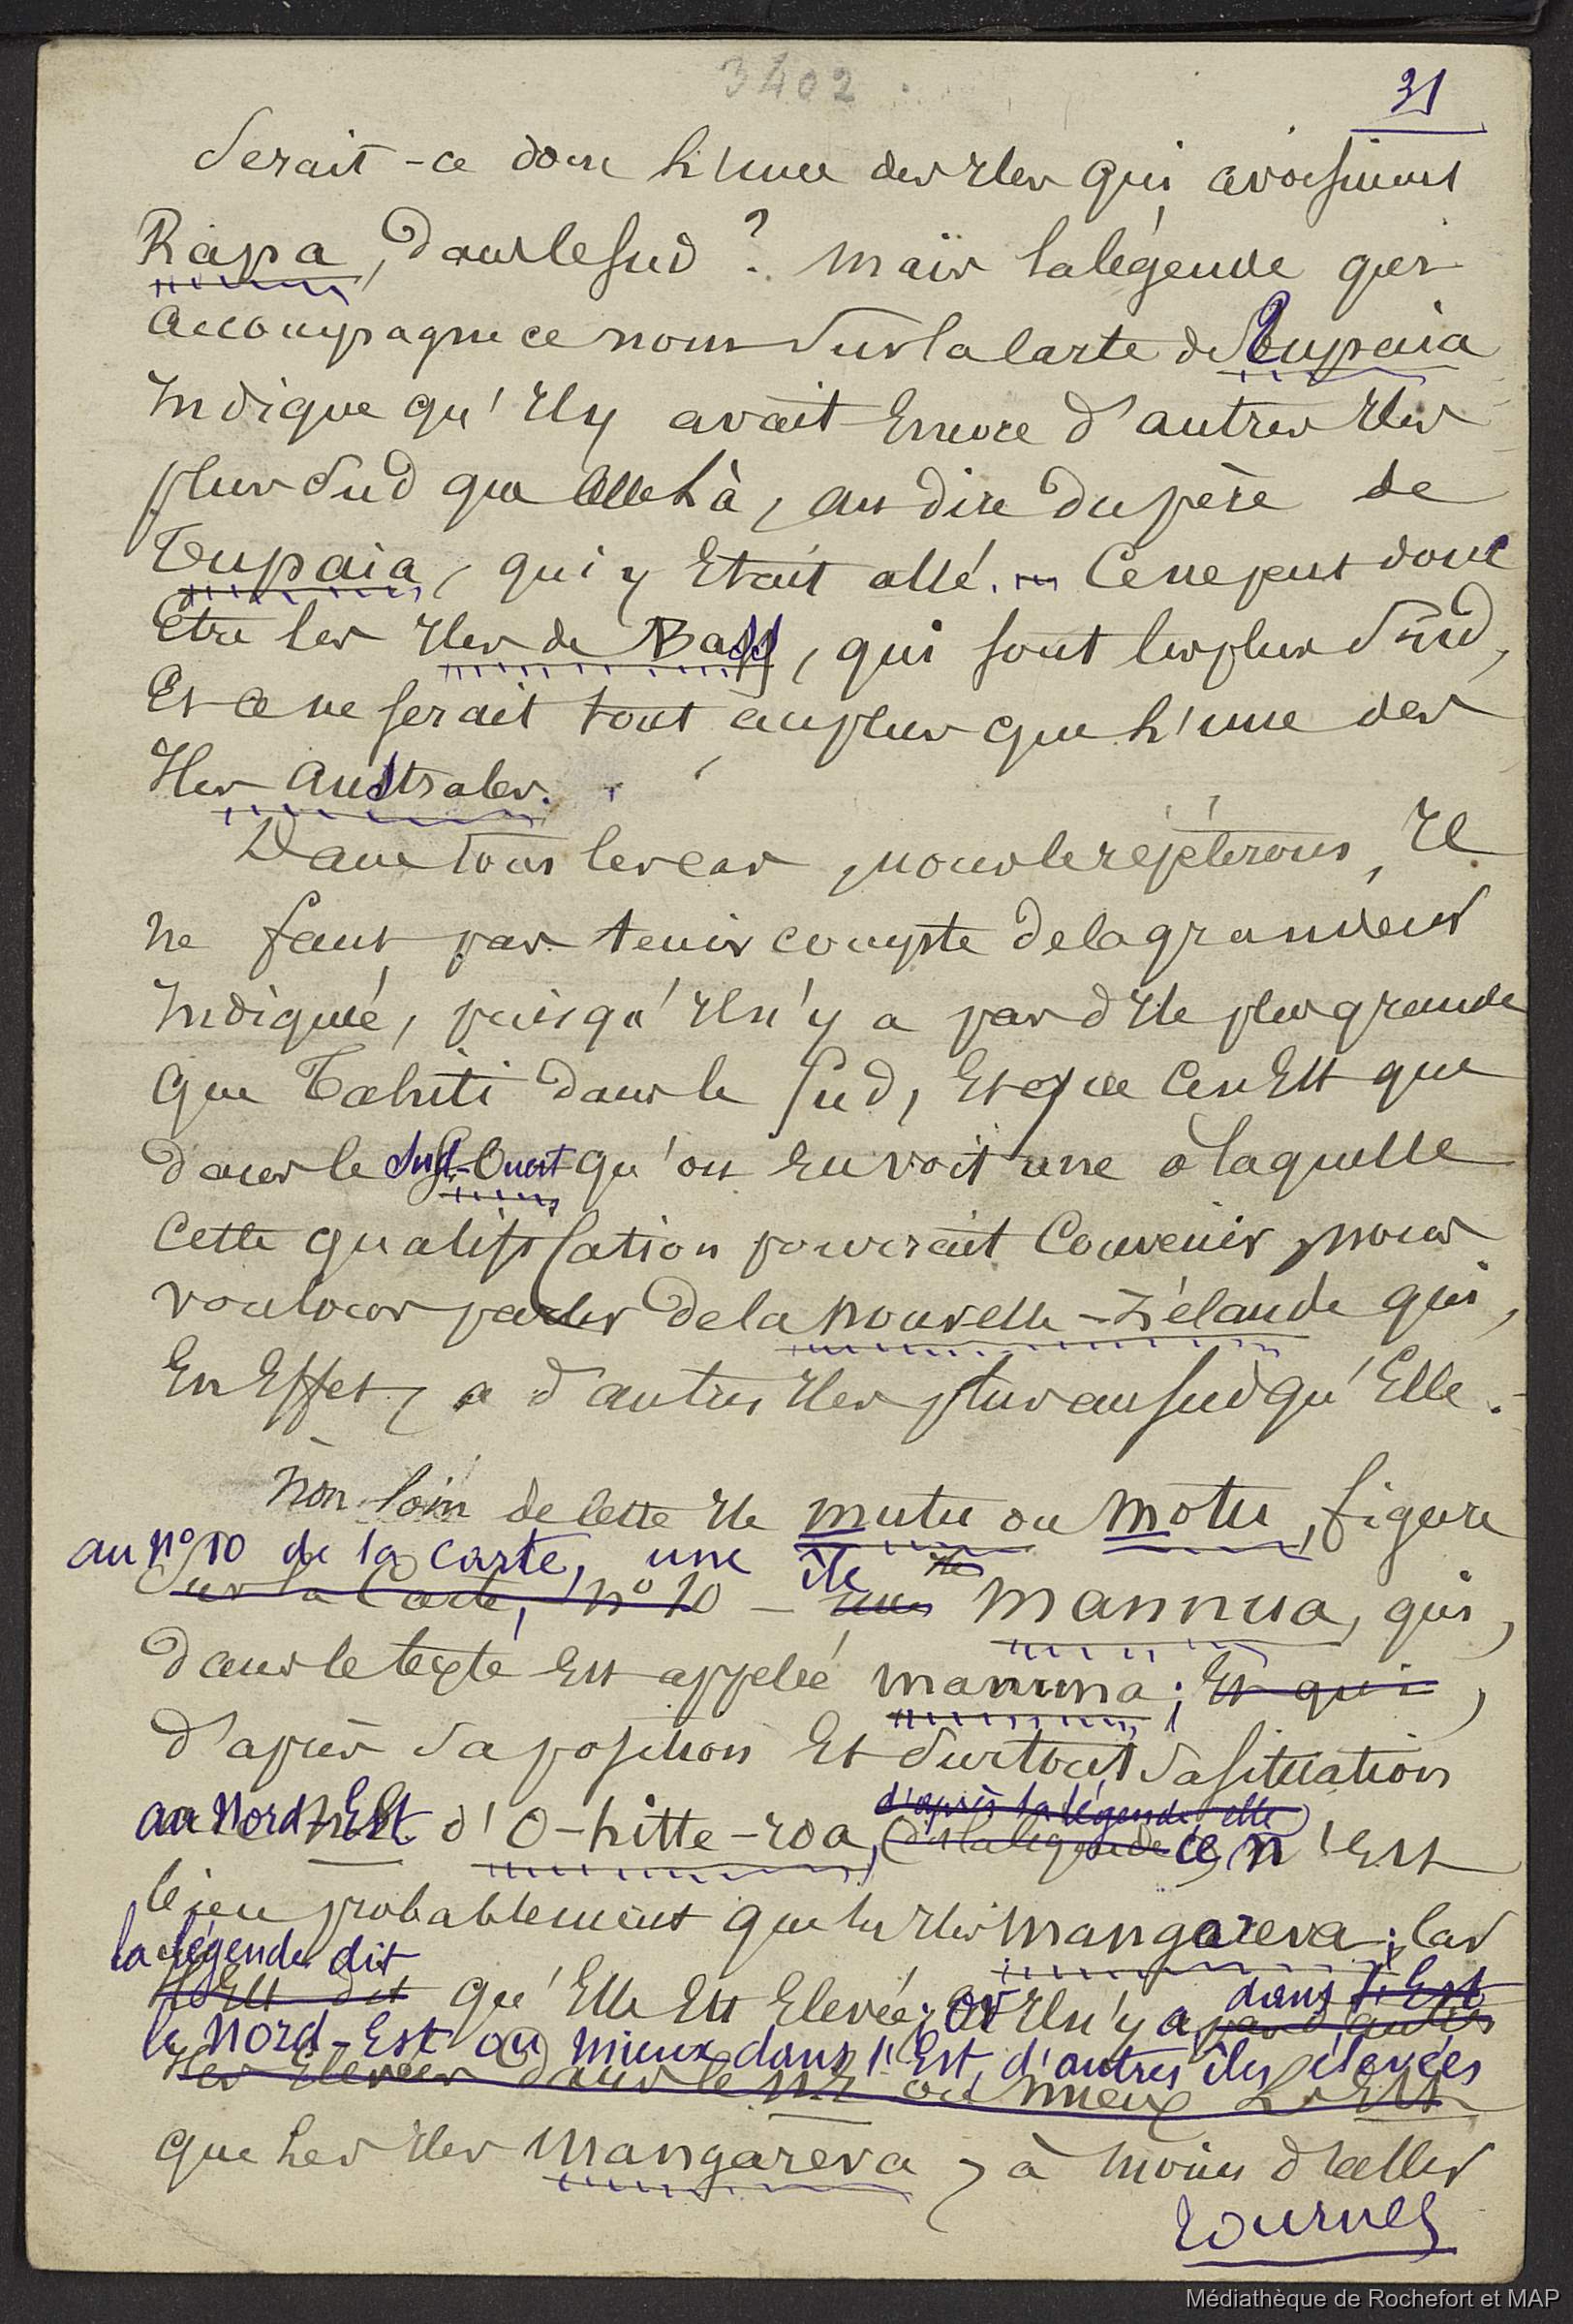 3402
31
Serait-ce donc l'une des îles qui avoisinent
Rapa, dans le sud ? mais la légende qui
accompagne ce nom sur la carte de Tupaia
indique qu'il y avait encore d'autres îles
plus sud que celle là, au dire du père de
Tupaia, qui y était allé. Ce ne peut donc
être les îles de Bass, qui sont les plus sud,
et ce ne serait tout au plus que l'une des
îles australes.
Dans tous les cas, nous le répéterons, il
ne faut pas tenir compte de la grandeur
indiquée, puisqu'il n'y a pas d'île plus grande
que Tahiti dans le sud, et que ce n'est que
dans le Sud-Ouest qu'on en voit une à laquelle
cette qualification pourrait convenir, nous
voulons parler de la nouvelle-Zélande qui,
en effet, a d'autres îles plus au sud qu'elle.
Non loin de cette île mutu ou motu, figure
au n° 10 de la carte, une île
sur la Carte, n° 10 - une île mannua, qui,
dans le texte est appelée manuna; et qui,
d'après sa position et surtout sa situation
d'après la légende elle
au Nord-Est d'O-hitte-roa, dit la légende ce n'est
bien probablement que les îles mangareva; car
la légende dit
qu'elle est élevée; or il n'y a pas d'autres
dans l'Est
le Nord-Est ou mieux dans l'Est, d'autres îles élevées
îles élevées dans le N E ou mieux l'Est
que les îles mangareva, à moins d'aller
tourner
Médiathèque de Rochefort et MAP